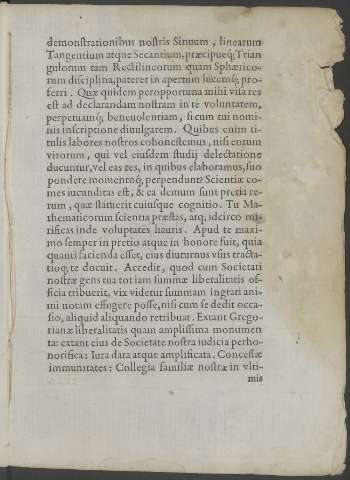 demonstrationibus nostris Sinuum, linearum
Tangentium atque Secantium, præcipueq́; Trian
gulorum tam Rectilineorum quam Sphærico-
rum disciplina, pateret in apertum lucemq́; pro-
ferri. Quæ quidem peropportuna mihi visa res
est ad declarandam nostram in te voluntatem,
perpetuamq́; beneuolentiam, si cum tui nomi-
nis inscriptione diuulgarem. Quibus enim ti-
tulis labores nostros cohonestemus, nisi eorum
virorum, qui vel eiusdem studij delectatione
ducuntur, vel eas res, in quibus elaboramus, suo
pondere momentoq́; perpendunt? Scientiæ co-
mes iucunditas est, & ea demum sunt pretia re-
rum, quæ statuerit cuiusque cognitio. Tu Ma-
thematicorum scientia præstas, atq; idcirco mi-
rificas inde voluptates hauris. Apud te maxi-
mo semper in pretio atque in honore fuit, quia
quanti facienda esset, eius diuturnus vsus tracta-
tioq́; te docuit. Accedit, quod cum Societati
nostræ gens tua tot iam summæ liberalitatis of-
ficia tribuerit, vix videtur summam ingrati ani-
mi notam effugere posse, nisi cum se dedit occa-
sio, aliquid aliquando retribuat. Extant Grego-
rianæ liberalitatis quam amplissima monumen
ta: extant eius de Societate nostra iudicia perho-
norifica: Iura data atque amplificata. Concessæ
immunitates: Collegia familiæ nostræ in vlti-
mis